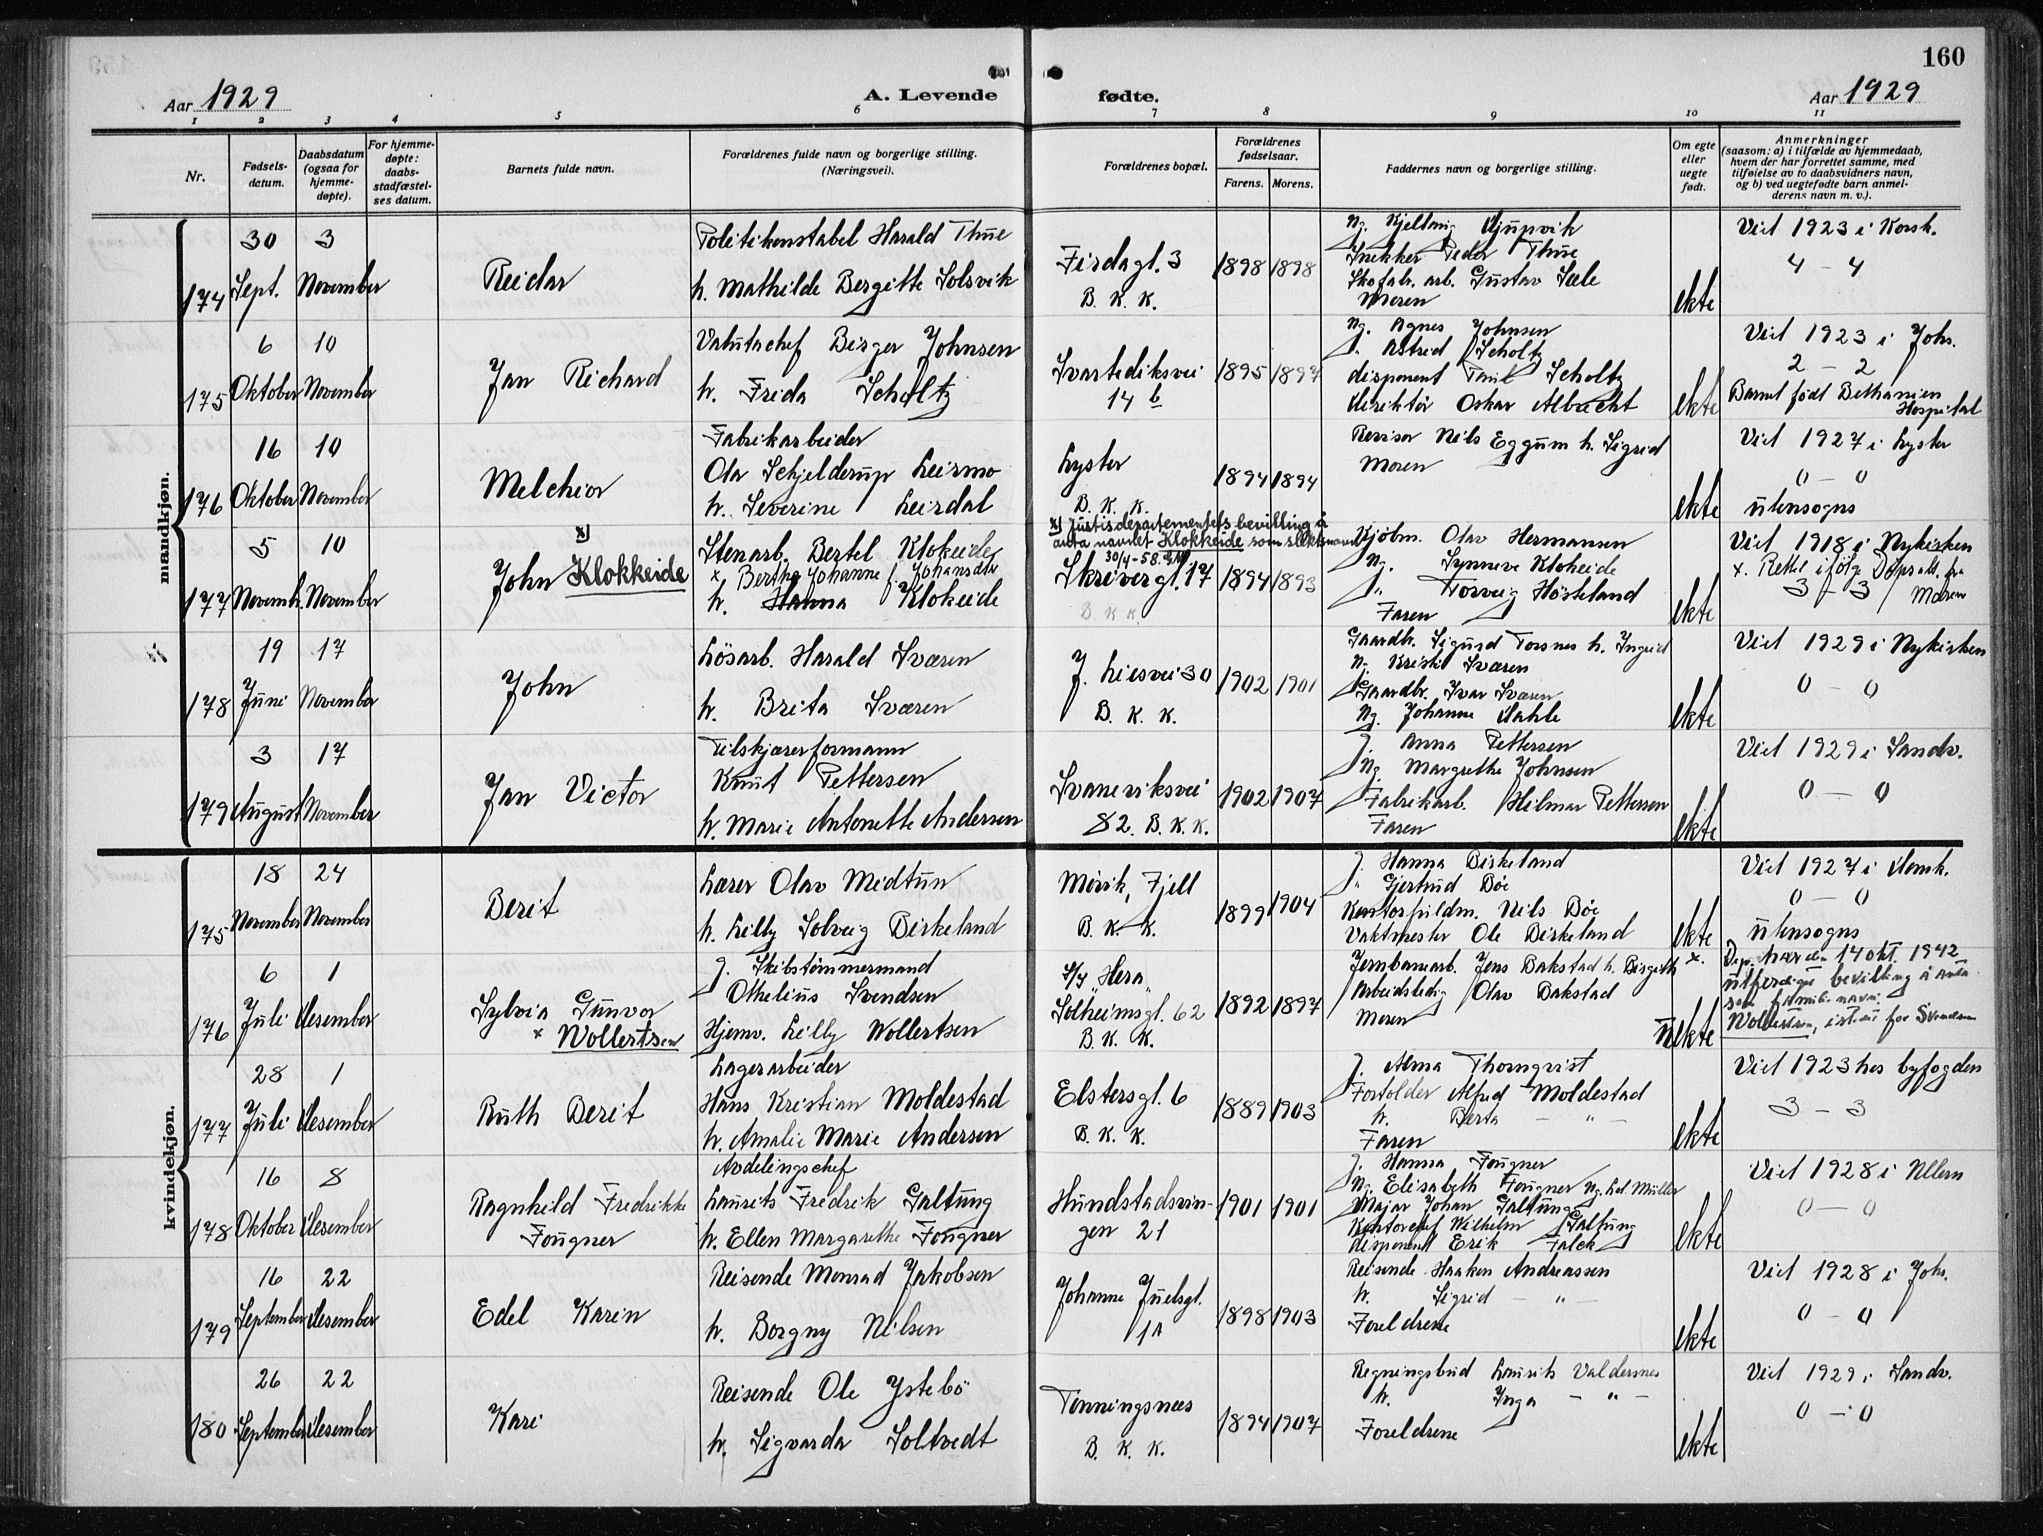 160
Aar 1929
A. Levende fødte.
Aar 1929
1 2 3 4 5 6 7 8 9 10 11
Nr.
Fødsels-
datum.
Daabsdatum
(ogsaa for
hjemme-
døpte).
For hjemme-
døpte:
daabs-
stadfæstel-
ses datum.
Barnets fulde navn.
Forældrenes fulde navn og borgerlige stilling.
(Næringsvei).
Forældrenes bopæl.
Forældrenes
fødselsaar.
Farens. Morens.
Faddernes navn og borgerlige stilling.
Om egte
eller
uegte
født.
Anmerkninger
(saasom: a) i tilfælde av hjemmedaab,
hvem der har forrettet samme, med
tilføielse av to daabsvidners navn,
og b) ved uegtefødte barn anmel-
derens navn m. v.).
mandkjøn.
174
30
Sept.
3
November
Reidar
Politikonstabel Harald Thue
h. Mathilde Bergitte Solsvik
Firdagt. 3
B. K. K.
1898 1898
Snekker Peder Thue
Skofabr. arb. Gustav Sæle
Moren
ekte
Viet 1923 i Korsk.
4 — 4
175
6
Oktober
10
November
Jan Richard
Valutachef Birger Johnsen
h. Frida Scholtz
Svartediksvei
14 b
1895 1897
Ng. Agnes Johnsen
" Astrid Scholtz
disponent Emil Scholtz
direktør Oskar Albrecht
ekte
Viet 1923 i Johs.
2 — 2
Barnet født Bethanien
Hospital
176
16
Oktober
10
November
Melchior
Fabrikarbeider
Olav Schjelderup Leirmo
h. Severine Leirdal
Lyster
B. K. K.
1894 1894
Revisor Nils Eggum h. Sigrid
Moren
ekte
Viet 1927 i Lyster
0 — 0
utensogns
177
5
Novembr.
10
November
x)
John Klokkeide
Stenarb. Bertel Klokeide
x Berthe Johanne f. Johansdtr
h. Hanna Klokeide
x) Justisdepartementets bevilling å
anta navnet Klokkeide som slektsnavn
30/4-58.
Skrivergt. 17
B. K. K.
1894 1893
Kjøbm. Olav Hermansen
Ng. Synneve Klokeide
J. Torveig Høsteland
Faren
ekte
Viet 1918 i Nykirken
x. Rettet ifølge Dåpsatt. fra
3 — 3 Moren
178
19
Juni
17
November
John
Løsarb. Harald Sværen
h. Brita Sværen
J. Liesvei 30
B. K. K.
1902 1901
Gaardbr. Sigurd Torsnes h. Ingrid
Ng. Kristi Sværen
Gaardbr. Ivar Sværen
Ng. Johanne Dahle
ekte
Viet 1929 i Nykirken
0 — 0
179
3
August
17
November
Jan Victor
Tilskjærerformann
Knut Pettersen
h. Marie Antonette Andersen
Svaneviksvei
82. B. K. K.
1902 1907
J. Anna Pettersen
Ng. Margrethe Johnsen
Fabrikarb. Hilmar Pettersen
Faren
ekte
Viet 1929 i Sandv.
0 — 0
kvindekjøn.
175
18
November
24
November
Berit
Lærer Olav Midtun
h. Lilly Solveig Birkeland
Morvik, Fjell
B. K. K.
1899 1904
J. Hanna Birkeland
" Gjertrud Bøe
Kontorfuldm. Nils Bøe
Vaktmester Ole Birkeland
ekte
Viet 1927 i Domk.
0 — 0
utensogns
176
6
Juli
1
Desember
Sylvia Gunvor
x Wollertsen
J. Skibstømmermand
Othelius Svendsen
Hjemv. Lilly Wollertsen
S/S "Hera"
Solheimsgt. 62
B. K. K.
1892 1897
Jernbanearb. Jens Bakstad h. Birgith
Arbeidsledig Olav Bakstad
Moren
uekte
x. Dep. har den 14 okt. 1942
utferdiget bevilling å anta
som familienavn:
Wollertsen, istedet for Svendsen
177
28
Juli
1
Desember
Ruth Berit
Lagerarbeider
Hans Kristian Moldestad
h. Amalie Marie Andersen
Elstersgt. 6
B. K. K.
1889 1903
J. Alma Thornqvist
Fortolder Alfred Moldestad
h. Berta — " —
Faren
ekte
Viet 1923 hos byfogden
3 — 3
178
16
Oktober
8
Desember
Ragnhild Fredrikke
Fougner
Avdelingschef
Laurits Fredrik Galtung
h. Ellen Margarethe Fougner
Hundstadsvin-
gen 21
1901 1901
J. Hanna Fougner
Ng. Elisabeth Fougner Ng. Lel Müller
Major Johan Galtung
Kontorchef Wilhelm Galtung
disponent Erik Falck
ekte
Viet 1928 i Ullern
0 — 0
179
16
September
22
Desember
Edel Karin
Reisende Monrad Jakobsen
h. Borgny Nilsen
Johanne Juelsgt.
1A
1898 1903
Reisende Haaken Andreassen
h. Sigrid — " —
Foreldrene
ekte
Viet 1928 i Johs.
0 — 0
180
26
September
22
Desember
Kari
Reisende Ole Ystebö
h. Sigvarda Soltvedt
Tenningsnes
B. K. K.
1894 1907
Regningsbud Laurits Valdersnes
h. Inga — " —
Foreldrene
ekte
Viet 1929 i Sandv.
0 — 0